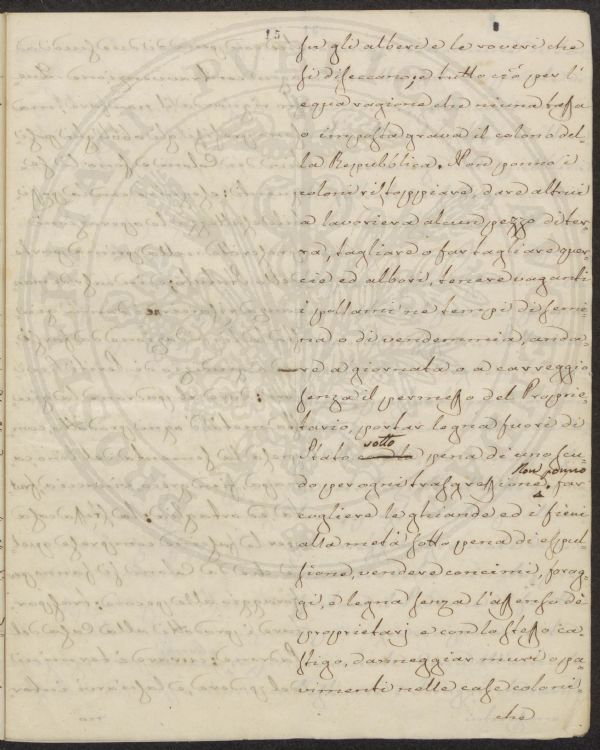 15
fra gli alberi e le roveri che
si diseccano; e tutto ciò per l'
equa ragione che niuna tassa
o imposta grava il colono del-
la Repubblica. Non ponno i
coloni ristoppiare, dare altrui
a lavoriera alcun pezzo di ter-
ra, tagliare o far tagliare quer-
cie ed albori, tenere vaganti
i pollami ne tempi di semi-
na o di vendemmia, anda-
re a giornata o a carreggio
senza il permesso del Proprie-
tario, portar legna fuori di
Stato sotto pena di uno scu-
do per ogni trasgressione. Non ponno far
cogliere le ghiande ed i fieni
alla metà sotto pena di espul-
sione, vendere concimi, forag-
gi, e legna senza l'assenso de
proprietarj e con lo stesso ca-
stigo, danneggiar muri o pa-
vimenti nelle case coloni-
che